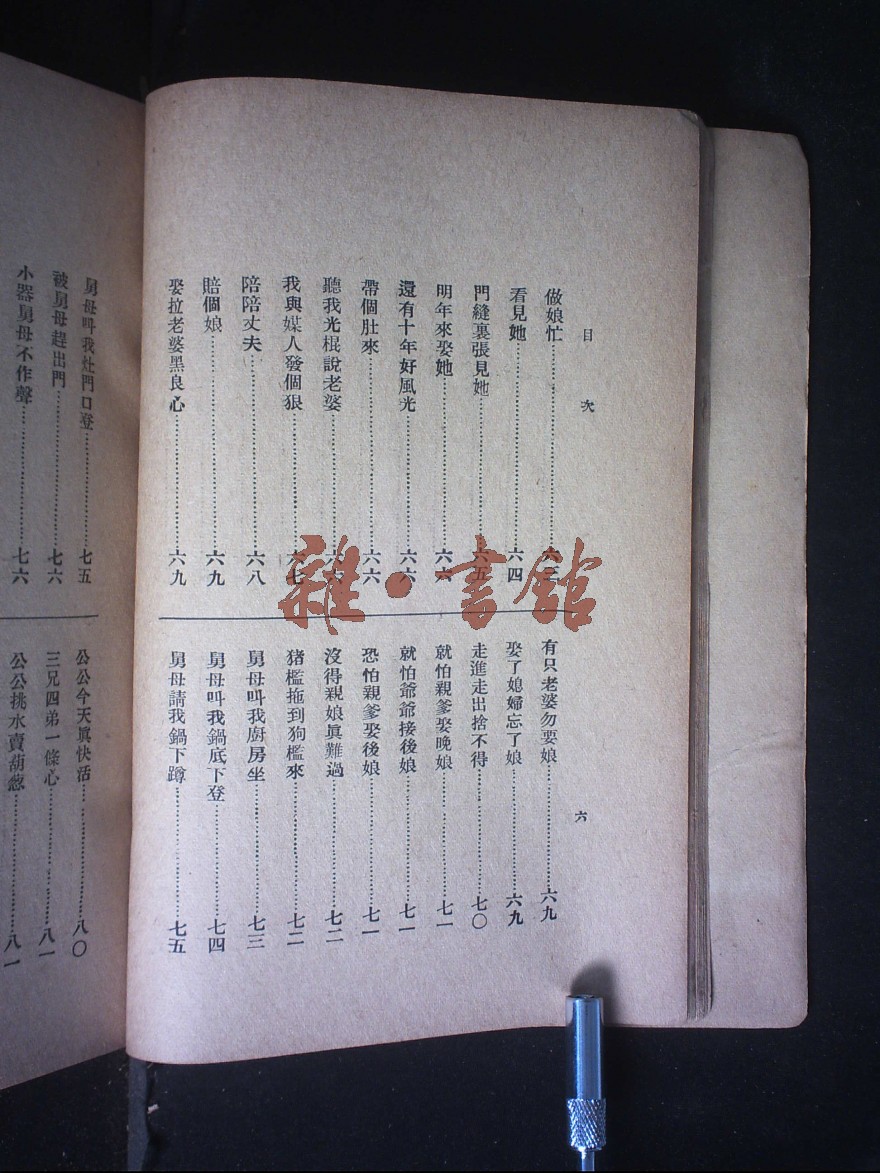 目次
做娘忙……六三
看見她……六四
門縫裏張見她……六五
明年來娶她……六六
還有十年好風光……六六
帶個肚來……六六
聽我光棍說老婆……六六
我與媒人發個狠……六七
陪陪丈夫……六八
賠個娘……六九
娶拉老婆黑良心……六九
有只老婆勿要娘……六九
娶了媳婦忘了娘……六九
走進走出捨不得……七〇
就怕親爹娶晚娘……七一
就怕爺爺接後娘……七一
恐怕親爹娶後娘……七一
沒得親娘眞難過……七二
猪檻拖到狗檻來……七二
舅母叫我廚房坐……七三
舅母叫我鍋底下登……七四
舅母請我鍋下蹲……七五
六
舅母叫我灶門口登……七五
被舅母趕出門……七六
小器舅母不作聲……七六
公公今天眞快活……八〇
三兄四弟一條心……八一
公公挑水賣葫蔥……八一
雜·書館